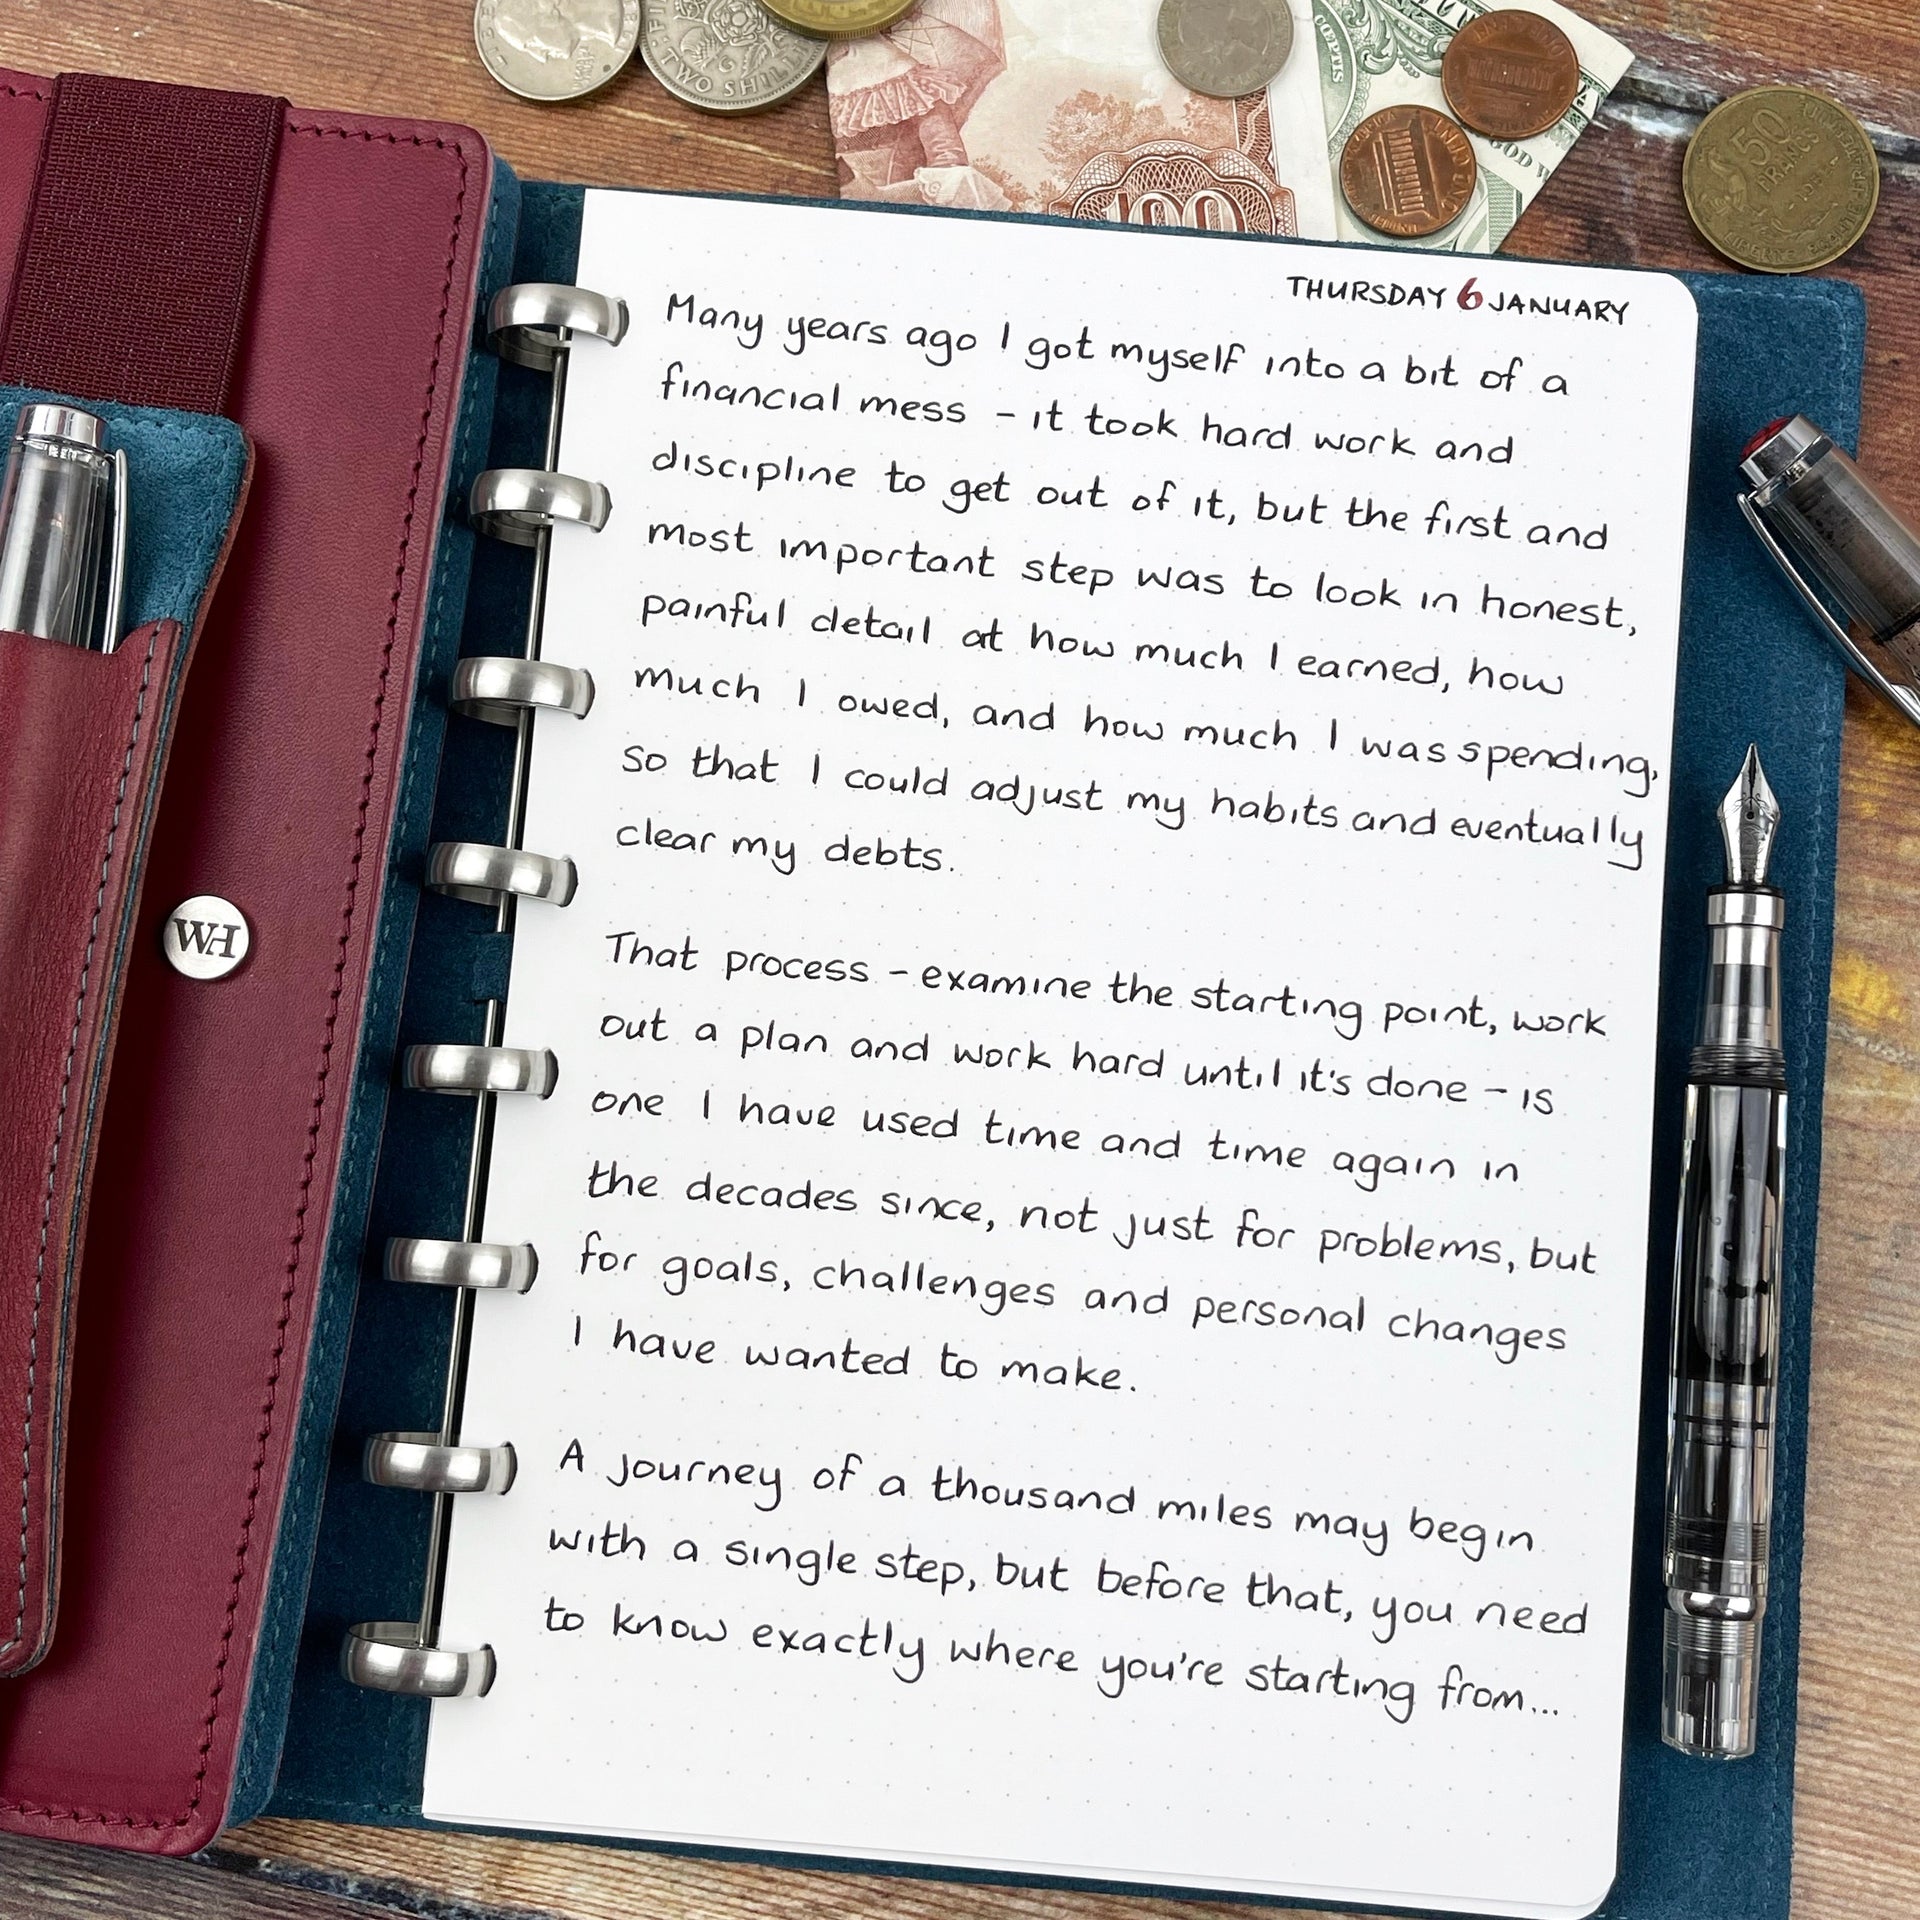 TWO SHILL
100
CŒPTIS
GOD W
50
FRANCS
THURSDAY 6 JANUARY
Many years ago I got myself into a bit of a
financial mess - it took hard work and
discipline to get out of it, but the first and
most important step was to look in honest,
painful detail at how much I earned, how
much I owed, and how much I was spending,
so that I could adjust my habits and eventually
clear my debts.
That process - examine the starting point, work
out a plan and work hard until it's done - is
one I have used time and time again in
the decades since, not just for problems, but
for goals, challenges and personal changes
I have wanted to make.
A journey of a thousand miles may begin
with a single step, but before that, you need
to know exactly where you're starting from...
WH